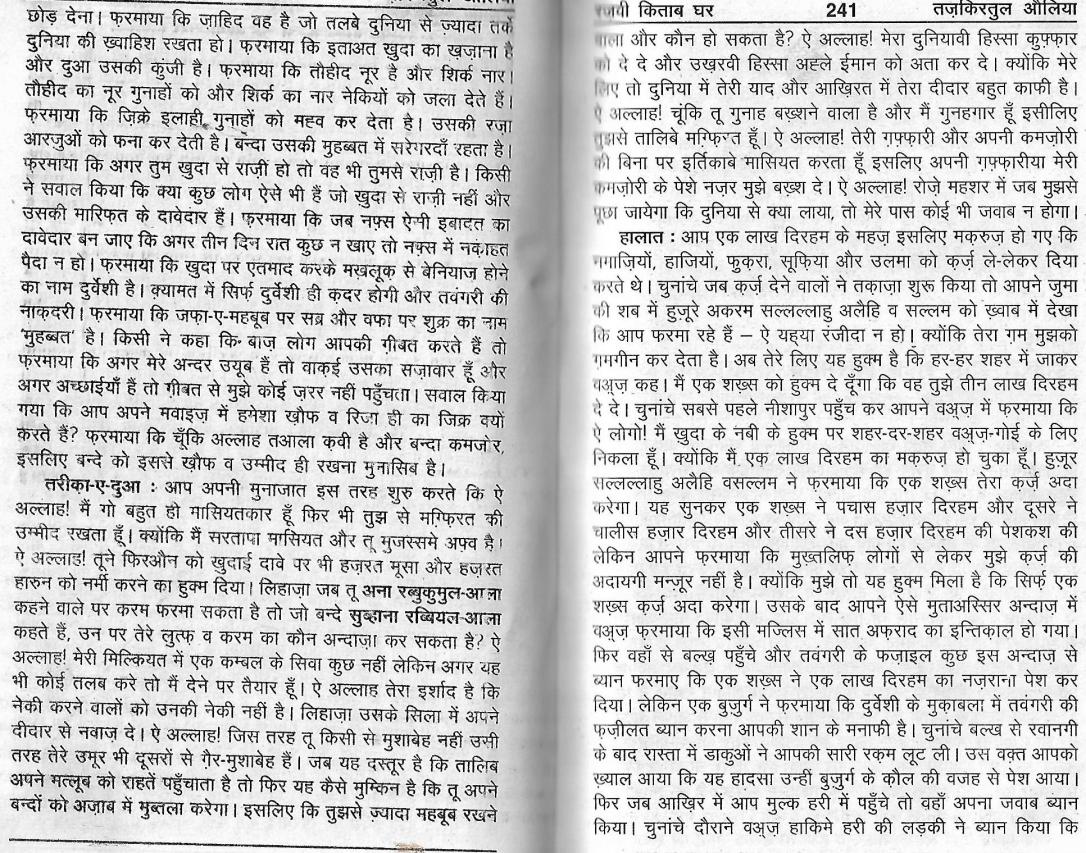 छोड़ देना। फ़रमाया कि ज़ाहिद वह है जो तलबे दुनिया से ज़्यादा तर्के
दुनिया की ख़्वाहिश रखता हो। फ़रमाया कि इताअत ख़ुदा का ख़ज़ाना है
और दुआ उसकी कुंजी है। फ़रमाया कि तौहीद नूर है और शिर्क नार।
तौहीद का नूर गुनाहों को और शिर्क का नार नेकियों को जला देते हैं।
फ़रमाया कि ज़िक्रे इलाही गुनाहों को मह्व कर देता है। उसकी रज़ा
आरज़ुओं को फना कर देती है। बन्दा उसकी मुहब्बत में सरेगरदाँ रहता है।
फ़रमाया कि अगर तुम ख़ुदा से राज़ीं हो तो वह भी तुमसे राज़ी है। किसी
ने सवाल किया कि क्या कुछ लोग ऐसे भी हैं जो ख़ुदा से राज़ी नहीं और
उसकी मारिफ़त के दावेदार हैं। फ़रमाया कि जब नफ़्स ऐसी इबादत का
दावेदार बन जाए कि अगर तीन दिन रात कुछ न खाए तो नफ़्स में नक़ाहत
पैदा न हो। फ़रमाया कि ख़ुदा पर एतमाद करके मख़लूक़ से बेनियाज होने
का नाम दुर्वेशी है। क़्यामत में सिर्फ़ दुर्वेशी ही क़दर होगी और तवंगरी की
नाक़दरी। फ़रमाया कि जफ़ा-ए-महबूब पर सब्र और वफा पर शुक्र का नाम
'मुहब्बत' है। किसी ने कहा कि बाज़ लोग आपकी ग़ीबत करते हैं तो
फ़रमाया कि अगर मेरे अन्दर उयूब हैं तो वाक़ई उसका सज़ावार हूँ और
अगर अच्छाईयाँ हैं तो ग़ीबत से मुझे कोई ज़रर नहीं पहुँचता। सवाल किया
गया कि आप अपने मवाइज़ में हमेशा ख़ौफ़ व रिजा ही का जिक्र क्यों
करते हैं? फ़रमाया कि चूँकि अल्लाह तआला क़वी है और बन्दा कमज़ोर,
इसलिए बन्दे को इससे ख़ौफ व उम्मीद ही रखना मुनासिब है।
तरीक़ा-ए-दुआ : आप अपनी मुनाजात इस तरह शुरु करते कि ऐ
अल्लाह! मैं गो बहुत ही मासियतकार हूँ फिर भी तुझ से मग्फ़िरत की
उम्मीद रखता हूँ। क्योंकि मैं सरतापा मासियत और तू मुजस्समे अफ़्व है।
ऐ अल्लाह! तूने फिरऔन को ख़ुदाई दावे पर भी हज़रत मूसा और हज़रत
हारुन को नर्मी करने का हुक्म दिया। लिहाज़ा जब तू अना रब्बुकुमुल-आला
कहने वाले पर करम फरमा सकता है तो जो बन्दे सुब्हाना रब्बियल-आला
कहते हैं, उन पर तेरे लुत्फ़ व करम का कौन अन्दाज़ा कर सकता है? ऐ
अल्लाह! मेरी मिल्कियत में एक कम्बल के सिवा कुछ नहीं लेकिन अगर यह
भी कोई तलब करे तो मैं देने पर तैयार हूँ। ऐ अल्लाह तेरा इर्शाद है कि
नेकी करने वालों को उनकी नेकी नहीं है। लिहाज़ा उसके सिला में अपने
दीदार से नवाज़ दे। ऐ अल्लाह! जिस तरह तू किसी से मुशाबेह नहीं उसी
तरह तेरे उमूर भी दूसरों से ग़ैर-मुशाबेह हैं। जब यह दस्तूर है कि तालिब
अपने मत्लूब को राहतें पहुँचाता है तो फिर यह कैसे मुम्किन है कि तू अपने
बन्दों को अज़ाब में मुब्तला करेगा। इसलिए कि तुझसे ज़्यादा महबूब रखने
रज़वी किताब घर 241 तज़किरतुल औलिया
वाला और कौन हो सकता है? ऐ अल्लाह! मेरा दुनियावी हिस्सा कुफ़्फार
को दे दे और उख़रवी हिस्सा अह्ले ईमान को अता कर दे। क्योंकि मेरे
लिए तो दुनिया में तेरी याद और आख़िरत में तेरा दीदार बहुत काफी है।
ऐ अल्लाह! चूंकि तू गुनाह बख़्शने वाला है और मैं गुनहगार हूँ इसीलिए
तुझसे तालिबे मग्फ़िरत हूँ। ऐ अल्लाह! तेरी ग़फ़्फ़ारी और अपनी कमज़ोरी
की बिना पर इर्तिकाबे मासियत करता हूँ इसलिए अपनी ग़फ़्फ़ारीया मेरी
कमज़ोरी के पेशे नज़र मुझे बख़्श दे। ऐ अल्लाह! रोज़े महशर में जब मुझसे
पूछा जायेगा कि दुनिया से क्या लाया, तो मेरे पास कोई भी जवाब न होगा।
हालात : आप एक लाख दिरहम के महज़ इसलिए मक़रुज़ हो गए कि
नमाज़ियों, हाजियों, फ़ुकरा, सूफ़िया और उलमा को क़र्ज़ ले-लेकर दिया
करते थे। चुनांचे जब क़र्ज़ देने वालों ने तक़ाज़ा शुरू किया तो आपने जुमा
की शब में हुज़ूरे अकरम सल्लल्लाहु अलैहि व सल्लम को ख़्वाब में देखा
कि आप फरमा रहे हैं – ऐ यह्या रंजीदा न हो। क्योंकि तेरा गम मुझको
ग़मगीन कर देता है। अब तेरे लिए यह हुक्म है कि हर-हर शहर में जाकर
वअ़्ज़ कह। मैं एक शख़्स को हुक्म दे दूँगा कि वह तुझे तीन लाख दिरहम
दे दे। चुनांचे सबसे पहले नीशापुर पहुँच कर आपने वअ़्ज़ में फरमाया कि
ऐ लोगो! मैं ख़ुदा के नबी के हुक्म पर शहर-दर-शहर वअ़्ज़-गोई के लिए
निकला हूँ। क्योंकि मैं एक लाख दिरहम का मक़रुज़ हो चुका हूँ। हुज़ूर
सल्लल्लाहु अलैहि वसल्लम ने फ़रमाया कि एक शख़्स तेरा क़र्ज़ अदा
करेगा। यह सुनकर एक शख़्स ने पचास हज़ार दिरहम और दूसरे ने
चालीस हज़ार दिरहम और तीसरे ने दस हज़ार दिरहम की पेशकश की
लेकिन आपने फ़रमाया कि मुख़्तलिफ़ लोगों से लेकर मुझे क़र्ज़ की
अदायगी मन्ज़ूर नहीं है। क्योंकि मुझे तो यह हुक्म मिला है कि सिर्फ़ एक
शख़्स क़र्ज़ अदा करेगा। उसके बाद आपने ऐसे मुताअस्सिर अन्दाज़ में
वअ़्ज़ फ़रमाया कि इसी मज्लिस में सात अफ़राद का इन्तिक़ाल हो गया।
फिर वहाँ से बल्ख़ पहुँचे और तवंगरी के फज़ाइल कुछ इस अन्दाज़ से
ब्यान फरमाए कि एक शख़्स ने एक लाख दिरहम का नज़राना पेश कर
दिया। लेकिन एक बुज़ुर्ग ने फ़रमाया कि दुर्वेशी के मुक़ाबला में तवंगरी की
फ़ज़ीलत ब्यान करना आपकी शान के मनाफी है। चुनांचे बल्ख से रवानगी
के बाद रास्ता में डाकुओं ने आपकी सारी रक़म लूट ली। उस वक़्त आपको
ख़्याल आया कि यह हादसा उन्हीं बुज़ुर्ग के क़ौल की वजह से पेश आया।
फिर जब आख़िर में आप मुल्क हरी में पहुँचे तो वहाँ अपना जवाब ब्यान
किया। चुनांचे दौराने वअ़्ज़ हाकिमे हरी की लड़की ने ब्यान किया कि